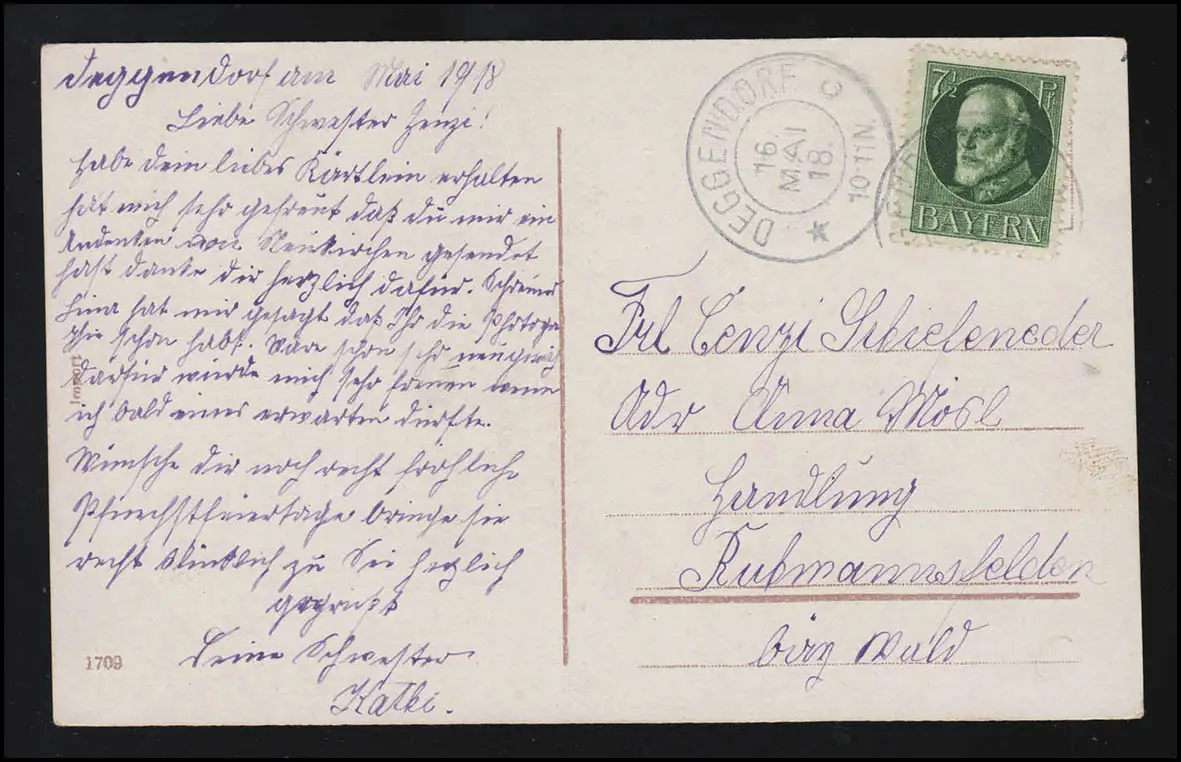 Deggendorf am Mai 1918
Liebe Schwester Zenzi!
Habe dein liebes Kärtlein erhalten
hat mich sehr gefreut daß du mir ein
Andenken von Neukirchen gesendet
hast danke dir herzlich dafür. Schreiner
Lina hat mir gesagt daß Ihr die Photogra
phie schon habt. Wäre schon sehr neugierig
darfür würde mich sehr freuen wenn
ich bald eines erwarten dürfte.
Wünsche dir noch recht fröhliche
Pfingstfeiertage bringe sie
recht glücklich zu Sei herzlich
gegrüßt
Deine Schwester
Kathi.
Import
1709
DEGGENDORF
16.
MAI
18.
10-11N
7½ Pf
BAYERN
Frl Cenzi Schiefeneder
Adr Anna Mösl
Handlung
Rußmannsfelden
bay Wald